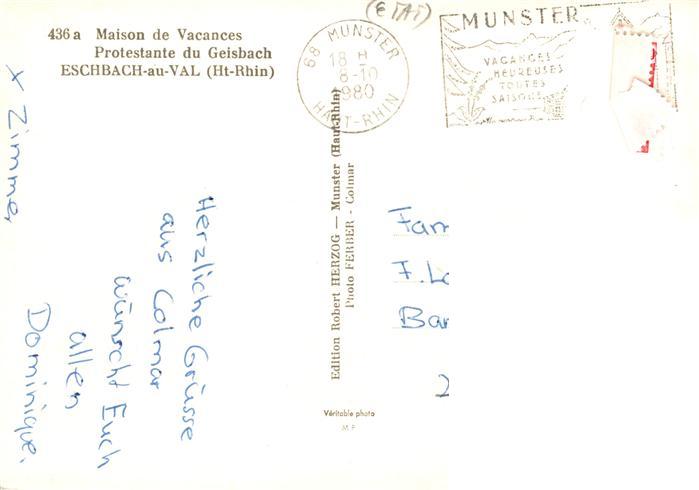 436a Maison de Vacances
Protestante du Geisbach
ESCHBACH-au-VAL (Ht-Rhin)
(ETAT)
68 MUNSTER
18 H
8-10
1980
HAUT-RHIN
MUNSTER
VACANCES
HEUREUSES
TOUTES
SAISONS
x Zimmer
Herzliche Grüsse
aus Colmar
wünscht Euch
allen
Dominique.
Edition Robert HERZOG — Munster (Haut-Rhin)
Photo FERBER - Colmar
Fam
F. Le
Bar
2
Véritable photo
M F